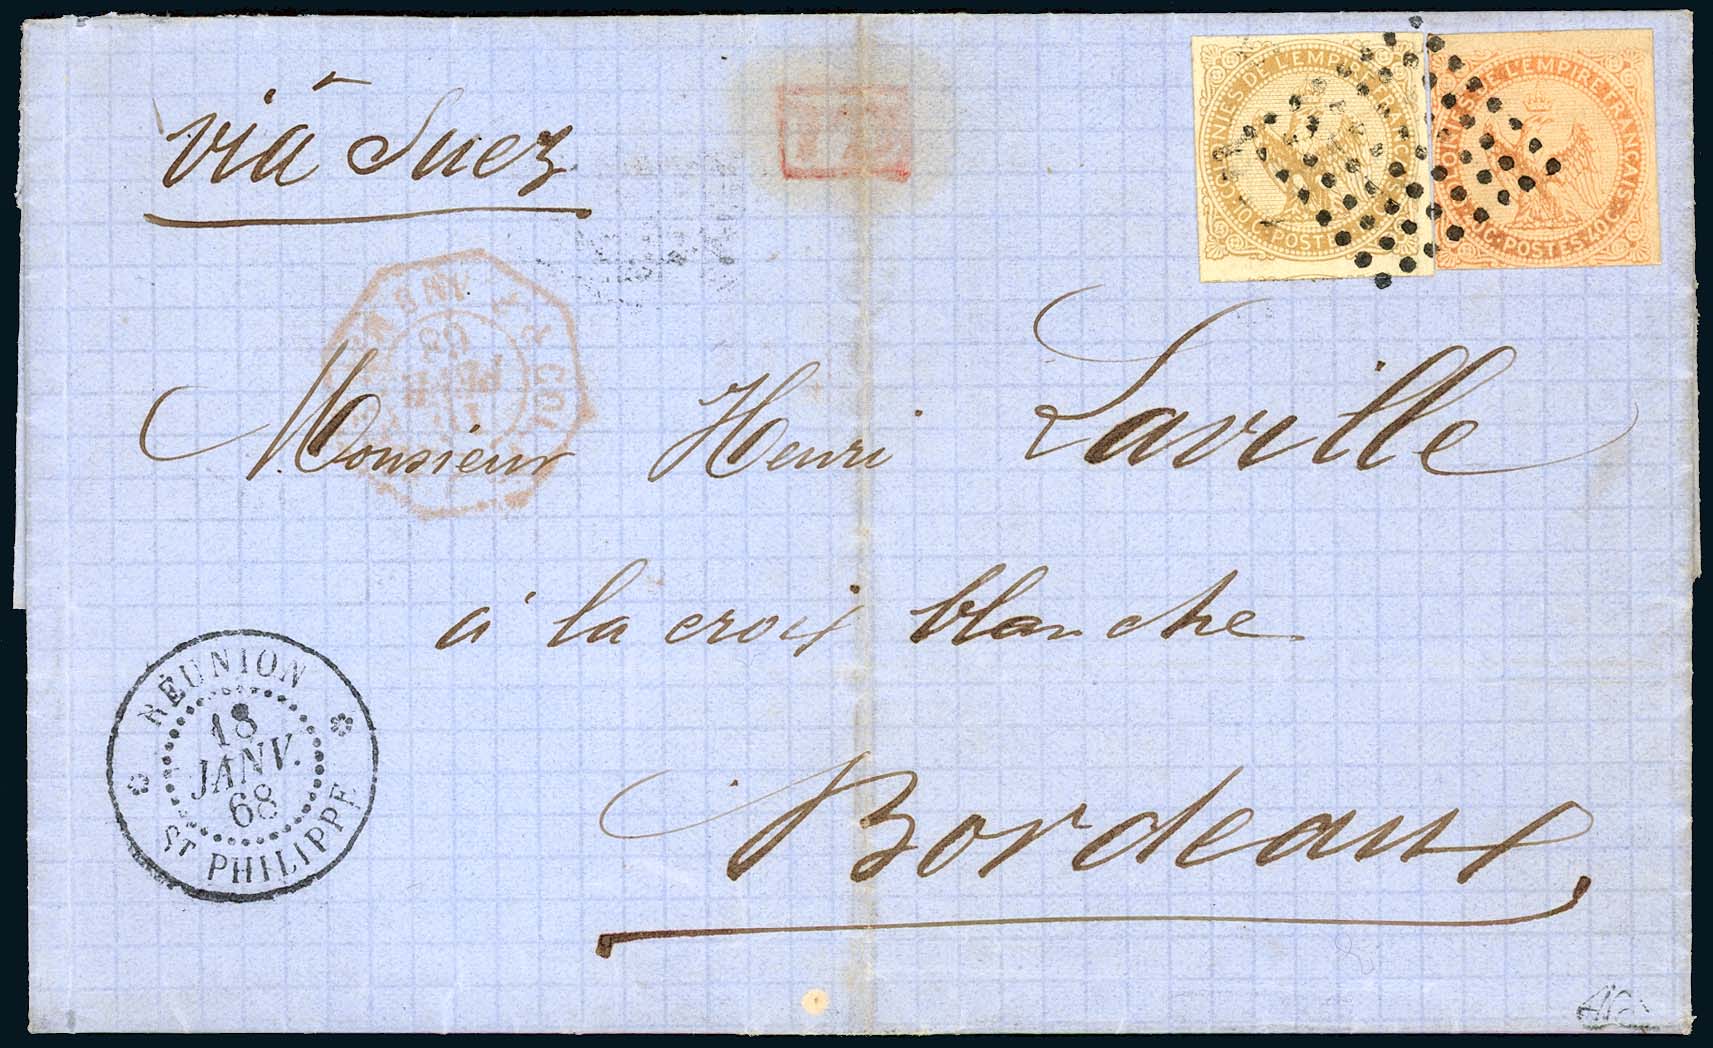 viâ Suez
COLONIES DE L'EMPIRE FRANÇAIS
10C. POSTES
COLONIES DE L'EMPIRE FRANÇAIS
40C. POSTES 40C.
Monsieur Henri Laville
à la croix blanche
Bordeaux
RÉUNION
18
JANV.
68
ST PHILIPPE